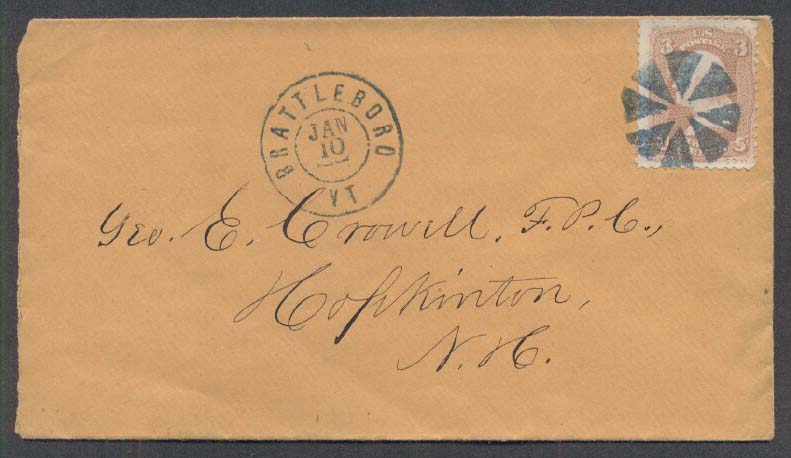 3 U.S. 3
POSTAGE
BRATTLEBORO
JAN
10
VT
Geo. E. Crowell, F.P.C.,
Hopkinton,
N.H.